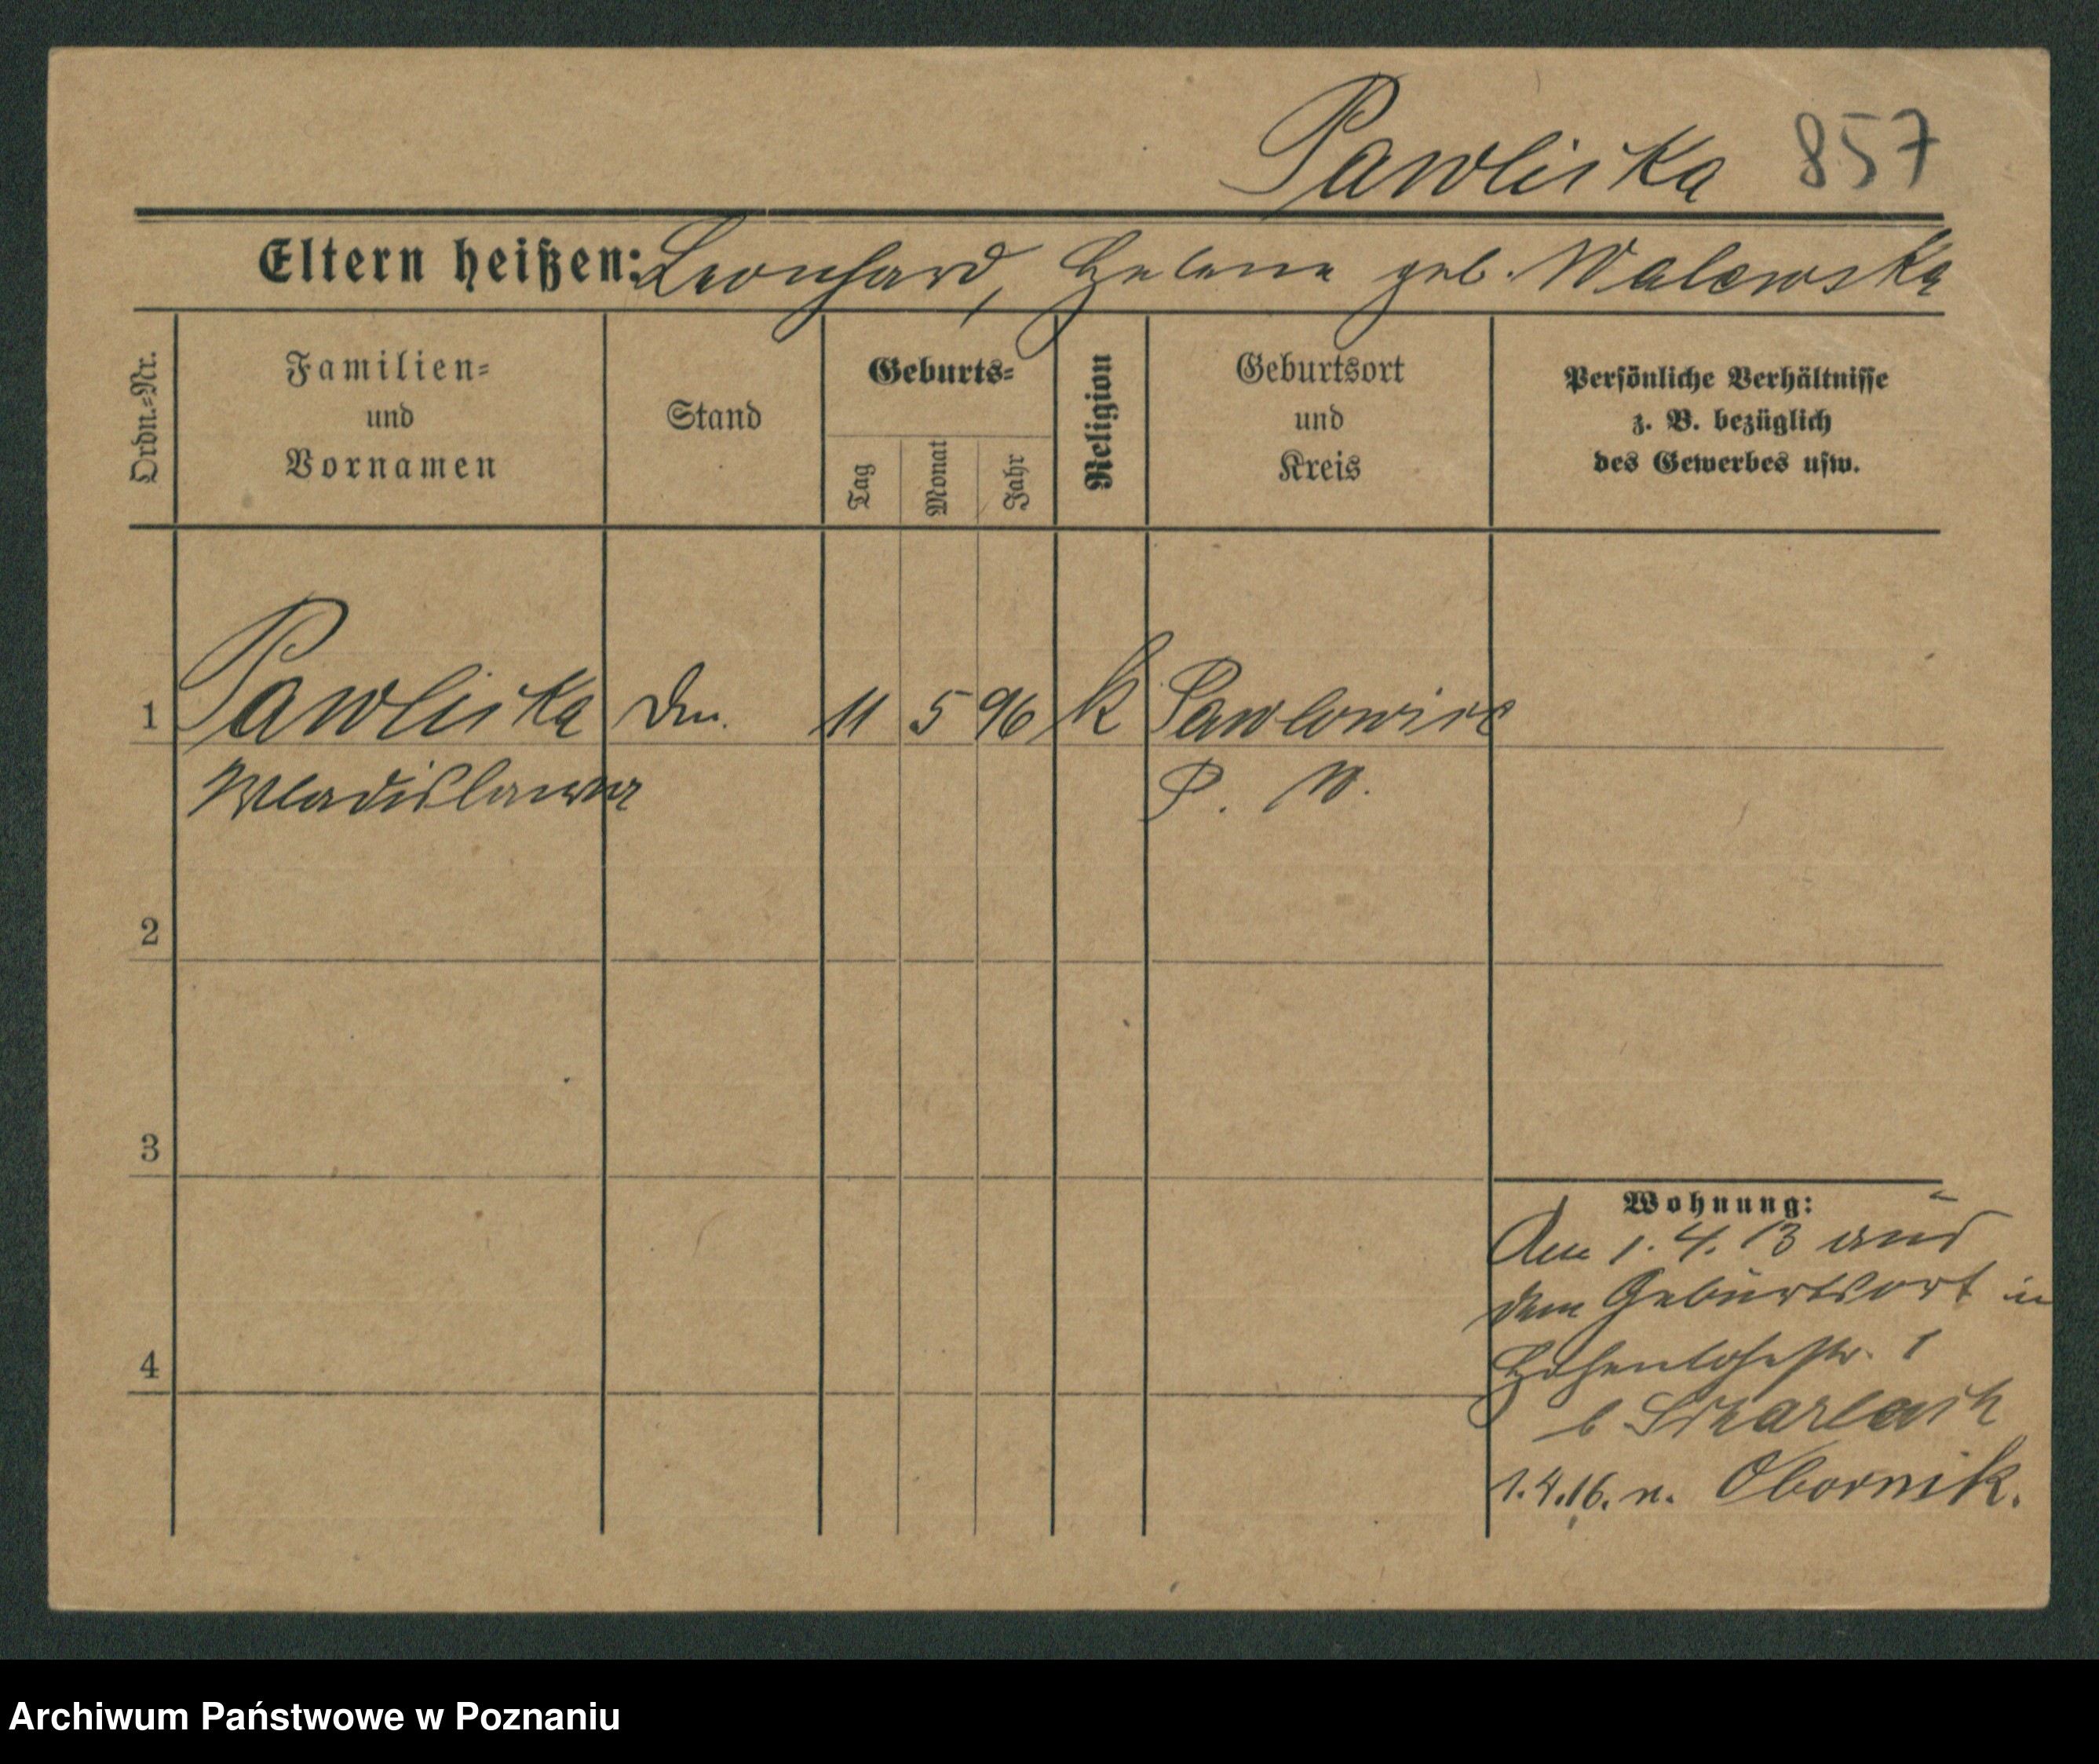 Pawliska 857
Eltern heißen: Leonhard, Helene geb. Walewska
Ordn.-Nr.
Familien-
und
Vornamen
Stand
Geburts-
Tag
Monat
Jahr
Religion
Geburtsort
und
Kreis
Persönliche Verhältnisse
z. B. bezüglich
des Gewerbes usw.
1 Pawliska Dm. 11 5 96 k Pawlowice
Wladislawa P. W.
2
3
4
Wohnung:
Am 1. 4. 13 aus
dem Geburtsort in
Hohenlohestr. 1
b
1.4.16. n. Obornik.
Archiwum Państwowe w Poznaniu